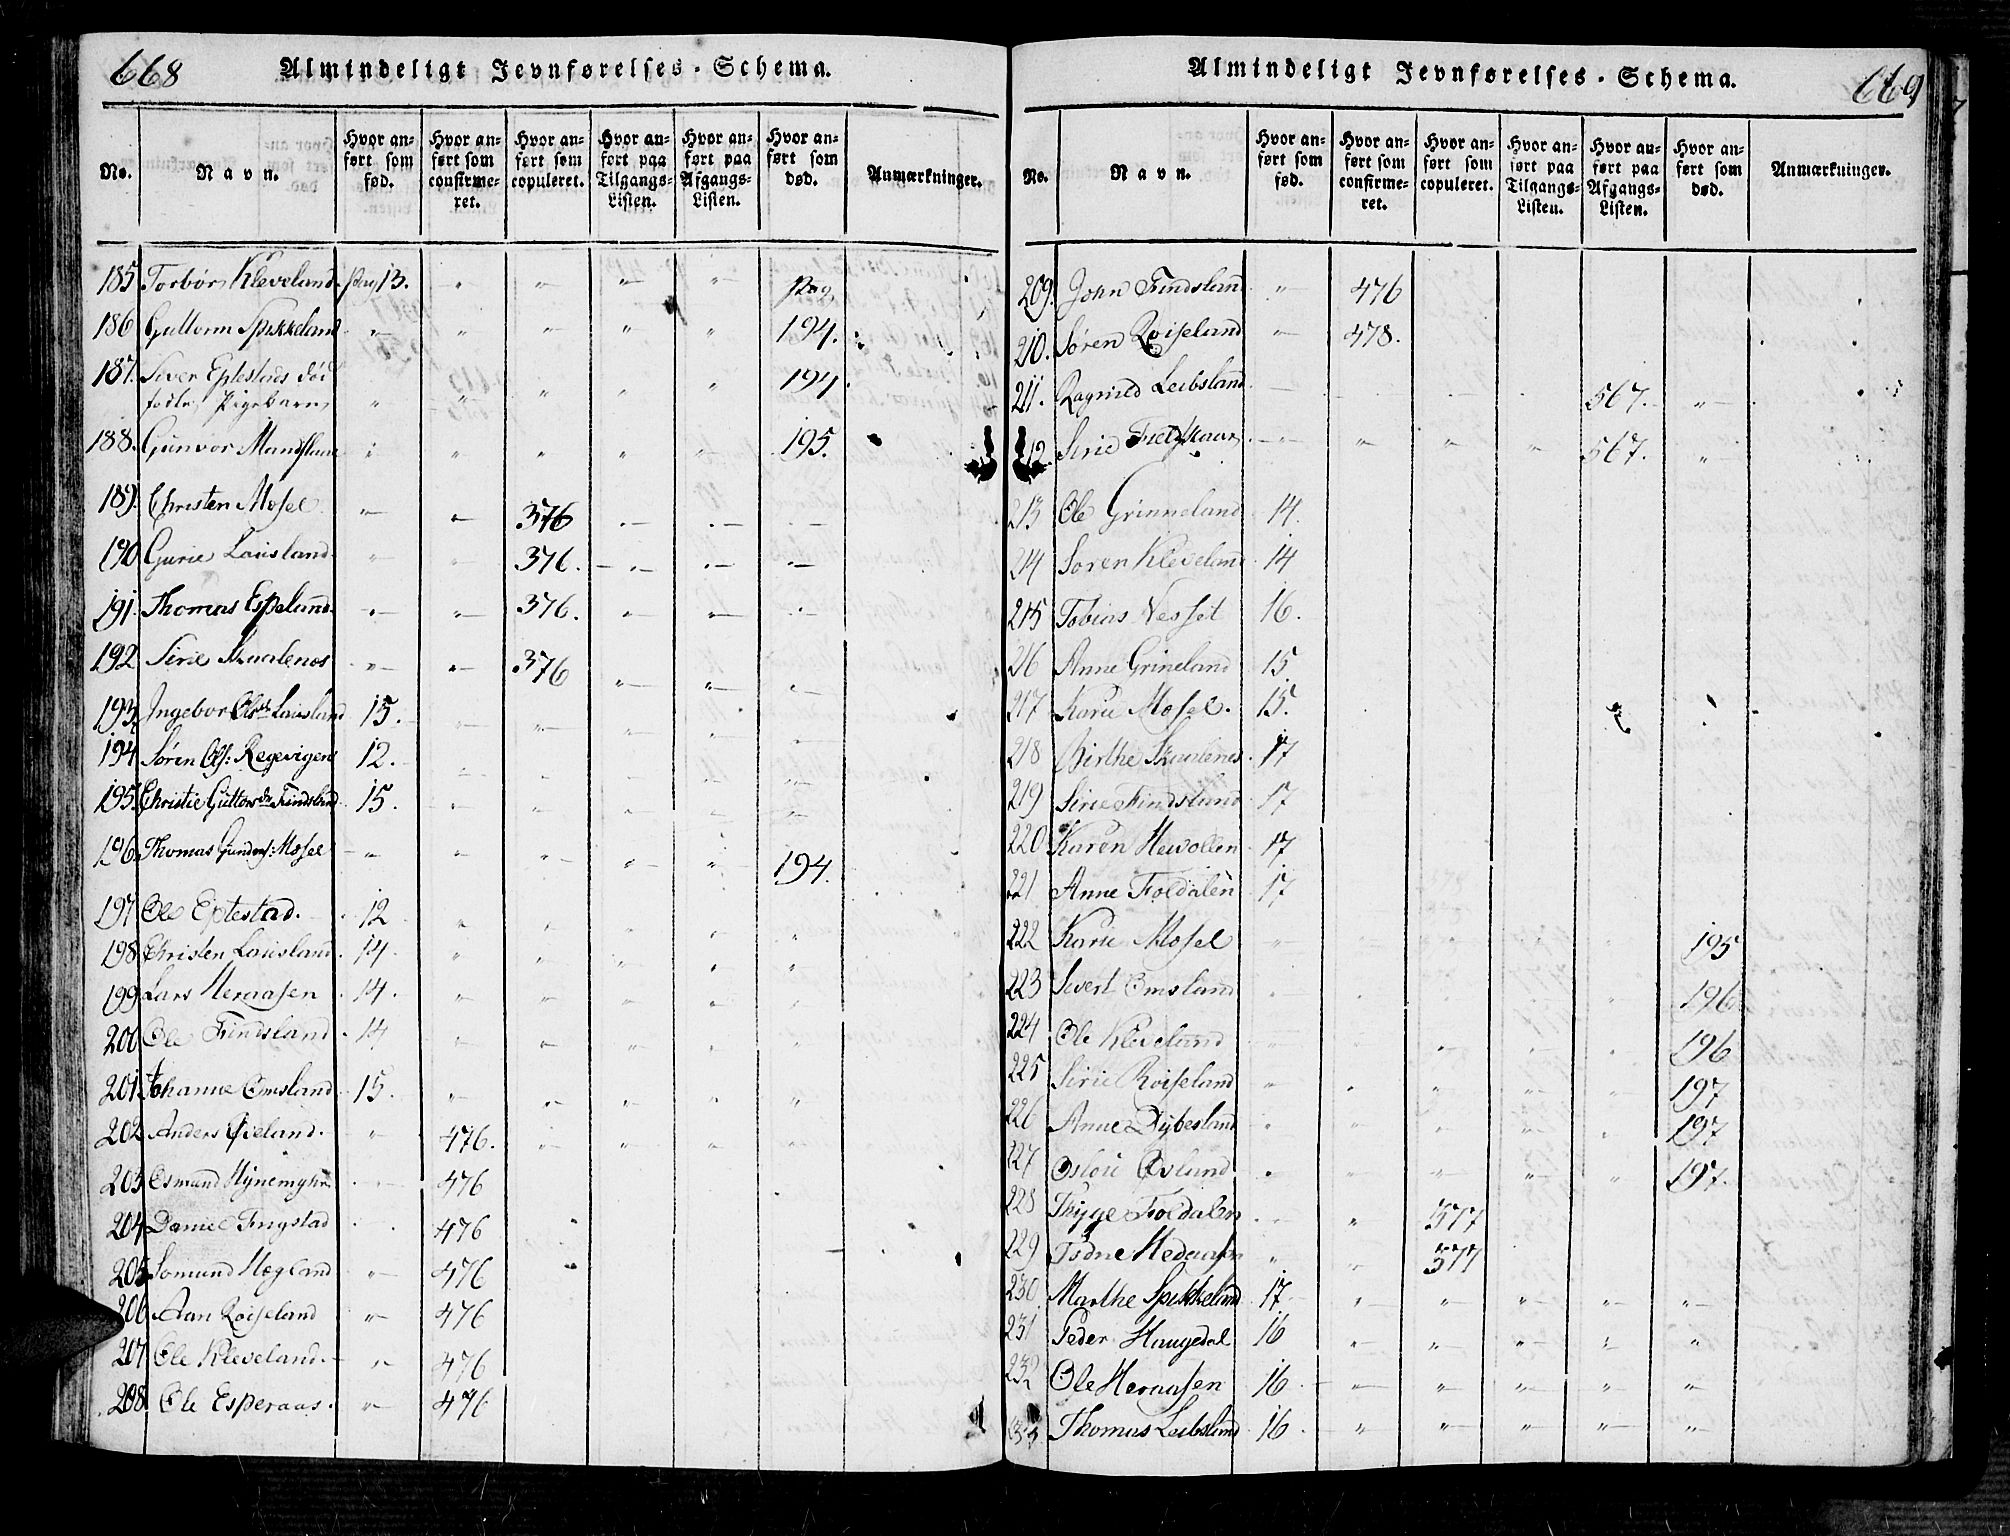 668
Almindeligt Jevnførelses-Schema.
No. Navn. Hvor anført som fød. Hvor anført som confirmeret. Hvor anført som copuleret. Hvor anført paa Tilgangs-Listen. Hvor anført paa Afgangs-Listen. Hvor anført som død. Anmærkninger.
185 Torbør Kleveland pag 13. " " " " pag
186 Guttorm Spikkeland " " " " " 194.
187. Siver Eplestads død
fødte Pigebarn " " " " " 194.
188. Gunvor " " " " " 195.
189. Christen Mosel " " 376 " " "
190 Gurie Lauisland " " 376. " " "
191. Thomas Espeland " " 376. " " "
192 Sirie Skaalenes " " 376 " " "
193. Ingebor Olsdr Lauisland 15. " " " " "
194 Søren Ols: Regevigen 12. " " " " "
195. Christie Guttorsdr Findsland 15. " " " " "
196. Thomas Gunders: Mosel " " " " " 194.
197 Ole Eptestad. 12 " " " " "
198 Christen Lauisland 14. " " " " "
199 Lars Heraasen 14. " " " " "
200 Ole Findsland 14 " " " " "
201 Johanne Omsland 15. " " " " "
202 Anders Øieland. " 476. " " " "
203 Osmund " 476
204 Daniel Fingstad " 476
205 Somund Høgland " 476
206 Aan Roiseland " 476
207 Ole Kleveland. " 476
208. Ole Esperaas. " 476
669
Almindeligt Jevnførelses-Schema.
No. Navn. Hvor anført som fød. Hvor anført som confirmeret. Hvor anført som copuleret. Hvor anført paa Tilgangs-Listen. Hvor anført paa Afgangs-Listen. Hvor anført som død. Anmærkninger.
209. John Findsland " 476
210. Søren Roiseland " 478.
211. Ragnild Leibsland 567. "
12 Sirie Fieldskaar " " " " 567. "
213 Ole Grinneland 14.
214 Soren Kleveland 14
215 Tobias Vesset 16.
216 Anne Grineland 15
217 Karie Mosel. 15.
218 Birthe Skaalenes 17
219 Sirie Findsland 17
220 Karen Hewollen 17
221 Anne Foldalen 17
222 Karie Mosel " " " " " 195
223 Sivert Omsland " " " " " 196
224 Ole Kleveland " " " " " 196
225 Sirie Roiseland " " " " " 197
226 Anne Dybesland " " " " " 197
227 Osloue Øsland " " " " " 197.
228 Thyge Foldalen " " 377
229 Tsdne Hedaasen " " 377
230 Marthe Spikkeland 17 " " " " "
231 Peder Haugedal 16 " " " " "
232 Ole Heraasen 16 " " " " "
233. Thomas Leibsland 16 " " " " "